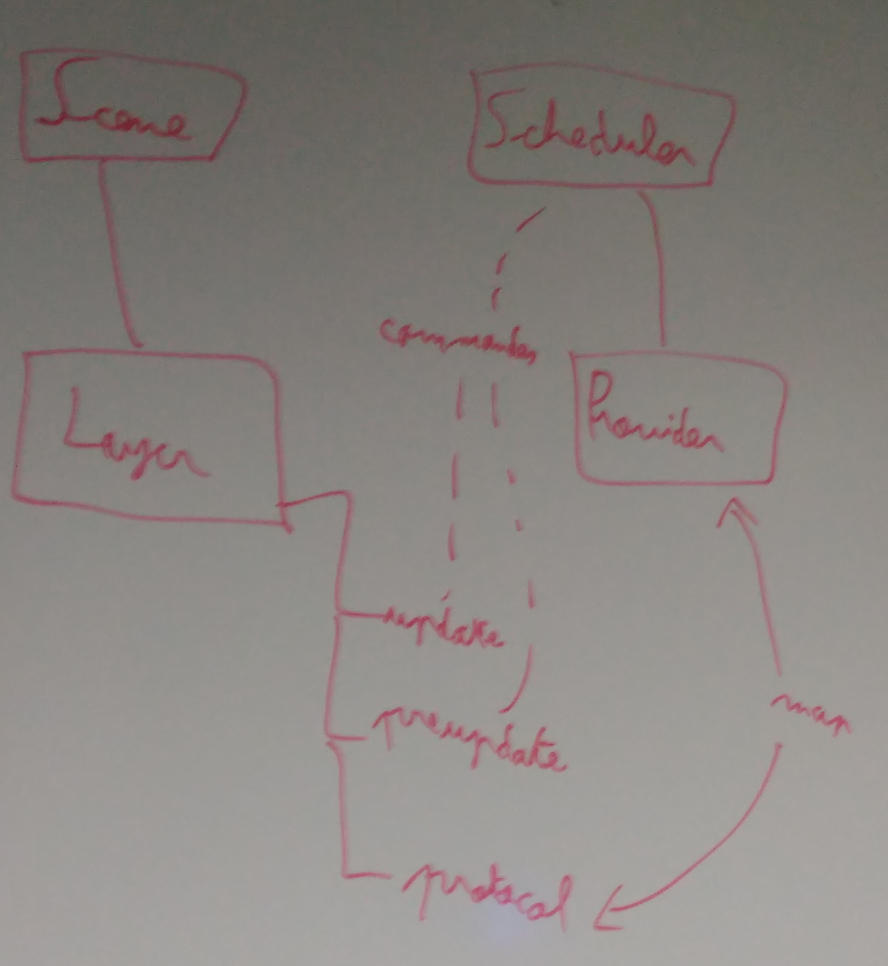 Scene
Scheduler
commandes
Layer
Provider
update
preupdate
map
protocol